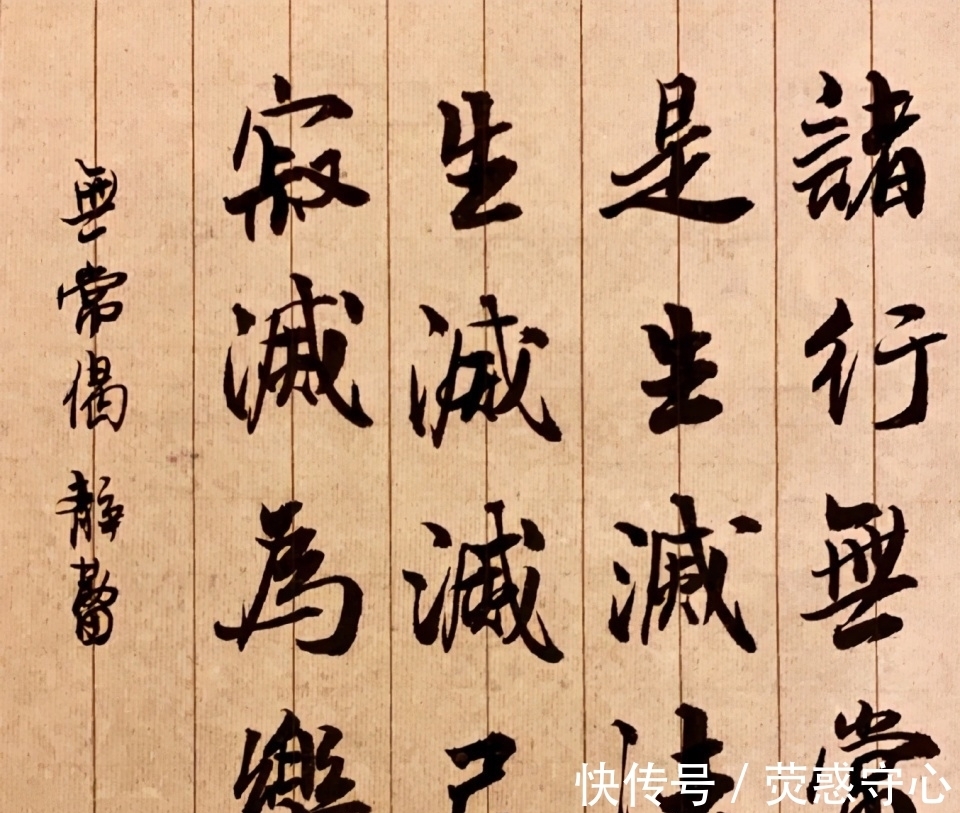 諸行無常
是生滅法
生滅滅已
寂滅為樂
無常偈 靜
快传号 / 荧惑守心